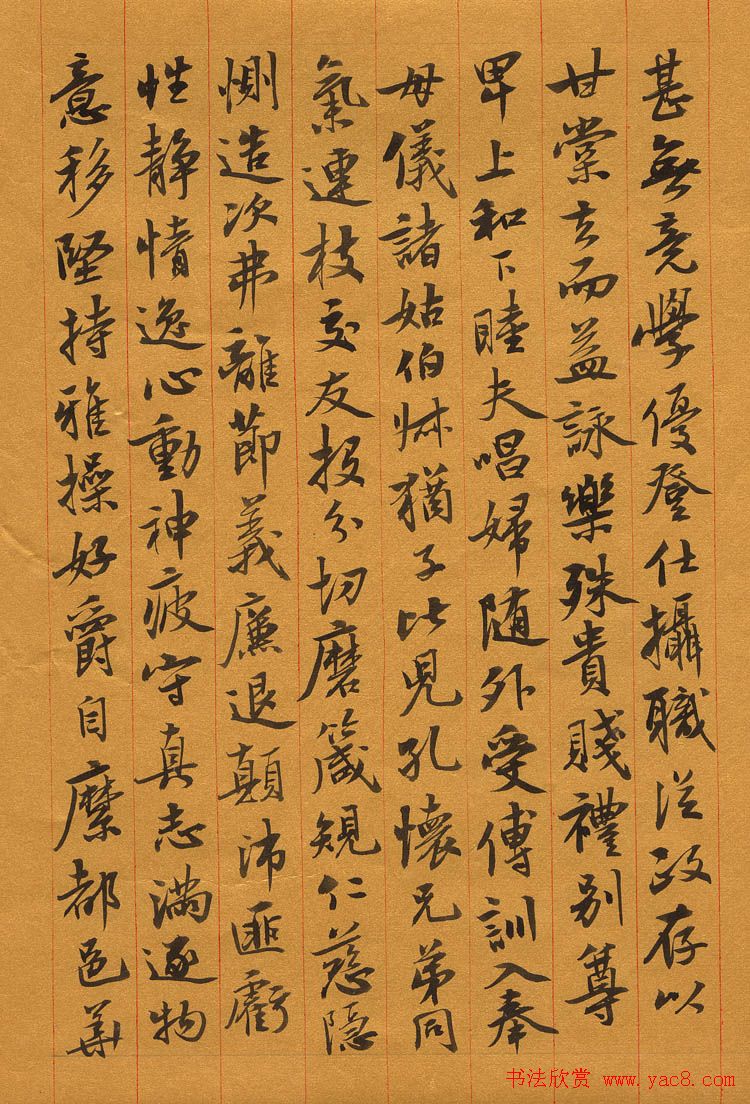 甚無竟學優登仕攝職從政存以
甘棠去而益詠樂殊貴賤禮別尊
卑上和下睦夫唱婦随外受傅訓入奉
母儀諸姑伯叔猶子比兒孔懷兄弟同
氣連枝交友投分切磨箴規仁慈隱
惻造次弗離節義廉退顛沛匪虧
性静情逸心動神疲守真志滿逐物
意移堅持雅操好爵自縻都邑華
书法欣赏 www.yac8.com